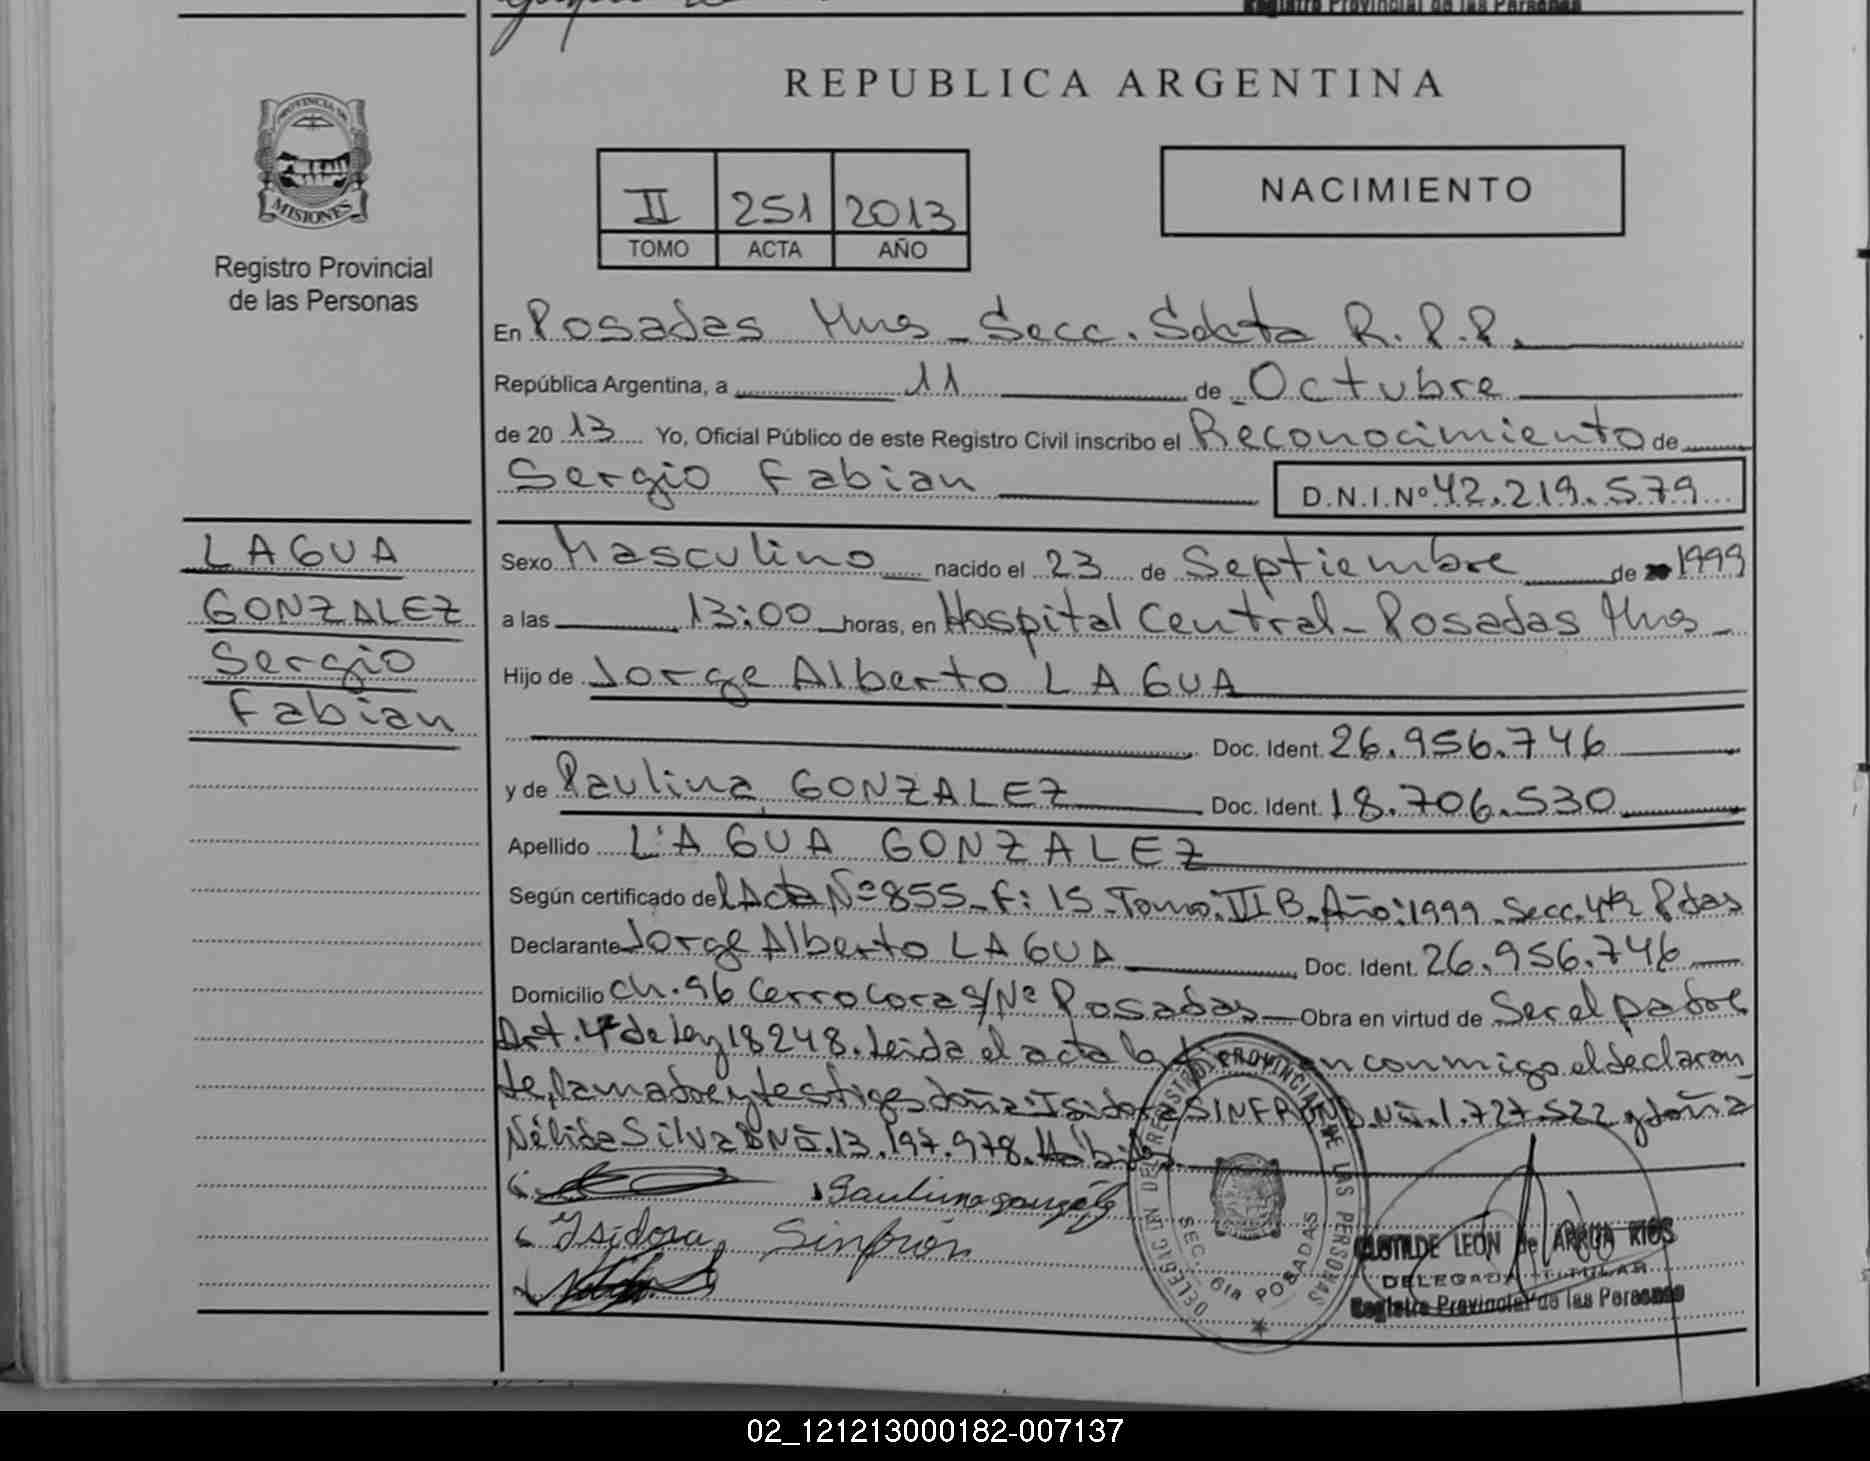 Registro Provincial de las Personas
REPUBLICA ARGENTINA
PROVINCIA DE
MISIONES
Registro Provincial
de las Personas
II 251 2013
TOMO ACTA AÑO
NACIMIENTO
En Posadas Mnes - Secc. Sexta R.P.P.
República Argentina, a 11 de Octubre
de 20 13 Yo, Oficial Público de este Registro Civil inscribo el Reconocimiento de
Sergio Fabian
D.N.I.Nº 42.219.579
LAGUA
GONZALEZ
Sergio
Fabian
Sexo Masculino nacido el 23 de Septiembre de 1999
a las 13:00 horas, en Hospital Central - Posadas Mnes -
Hijo de Jorge Alberto LAGUA
Doc. Ident. 26.956.746
y de Paulina GONZALEZ Doc. Ident. 18.706.530
Apellido LAGUA GONZALEZ
Según certificado del Acta Nº 855 - F: 15 - Tomo: III B - Año: 1999 - Secc. 4ta Pdas
Declarante Jorge Alberto LAGUA Doc. Ident. 26.956.746
Domicilio Ch. 96 Cerro Cora S/Nº Posadas - Obra en virtud de Ser el padre
Art. 4º de Ley 18248. Leida el acta la firman conmigo el declaran
te, la madre y testigos doña: Isidora SINFRON D.N.I. 1.727.522 y doña
Nélida Silva DNI. 13.197.978. Hábiles.
Paulina González
Isidora Sinfrón
DELEGACION DEL REGISTRO PROVINCIAL DE LAS PERSONAS
SEC. 6ta POSADAS
CLOTILDE LEON de ARRUA RIOS
DELEGADA TITULAR
Registro Provincial de las Personas
02_121213000182-007137